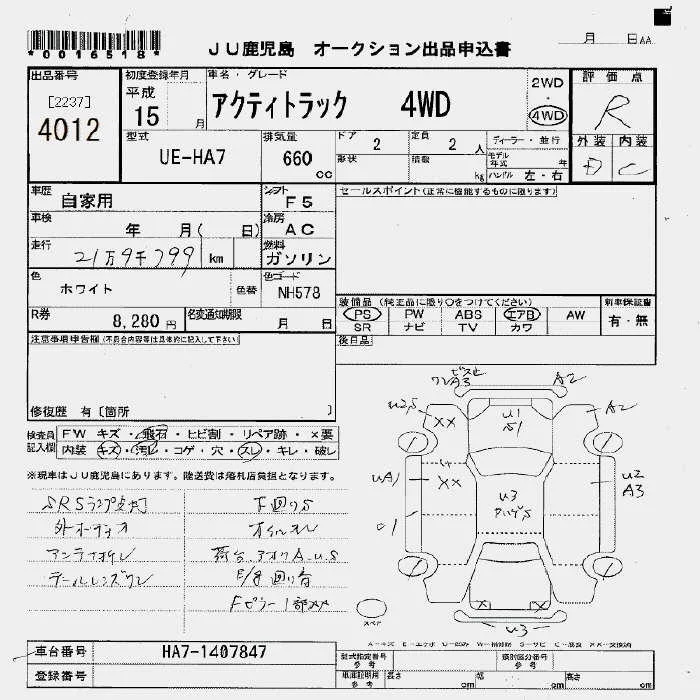 *0016518*
JU鹿児島 オークション出品申込書
月 日AA
出品番号
[2237]
4012
初度登録年月
平成
15 月
車名・グレード
アクティトラック 4WD
2WD
・
4WD
評価点
R
型式
UE-HA7
排気量
660
cc
ドア
2
形状
定員
2 人
積載
kg
ディーラー・並行
モデル
年式 年
ハンドル 左・右
外装 内装
D C
車歴
自家用
シフト
F5
車検
年 月( 日)
冷房
AC
走行
21万9千799 km
燃料
ガソリン
色
ホワイト
色替
色コード
NH578
R券
8,280 円
名変通知期限
月 日
セールスポイント(正常に機能するものに限ります)
装備品 (純正品に限り○をつけてください)
PS PW ABS エアB AW
SR ナビ TV カワ
新車保証書
有・無
後日品
注意事項申告欄(不具合内容等は具体的に記入して下さい)
修復歴 有〔箇所 〕
検査員
記入欄
FW キズ・飛石・ヒビ割・リペア跡・×要
内装 キズ・汚れ・コゲ・穴・スレ・キレ・破レ
※現車はJU鹿児島にあります。陸送費は落札店負担となります。
SRSランプ点灯
外オーディオ
テールレンズワレ
下回りS
オイルモレ
荷台、アオリA、U、S
Fピラー1部
A3
A2
U1
S1
XX
A2
UA1
XX
U3
U2
A3
X X
U3
スペア
A-キズ E-エクボ U-凹み W-補修跡 S-サビ C-腐食 XX-交換済
車台番号
HA7-1407847
登録番号
型式指定番号
参考
類別区分番号
参考
車庫証明用
参考
長さ cm
幅 cm
高さ cm